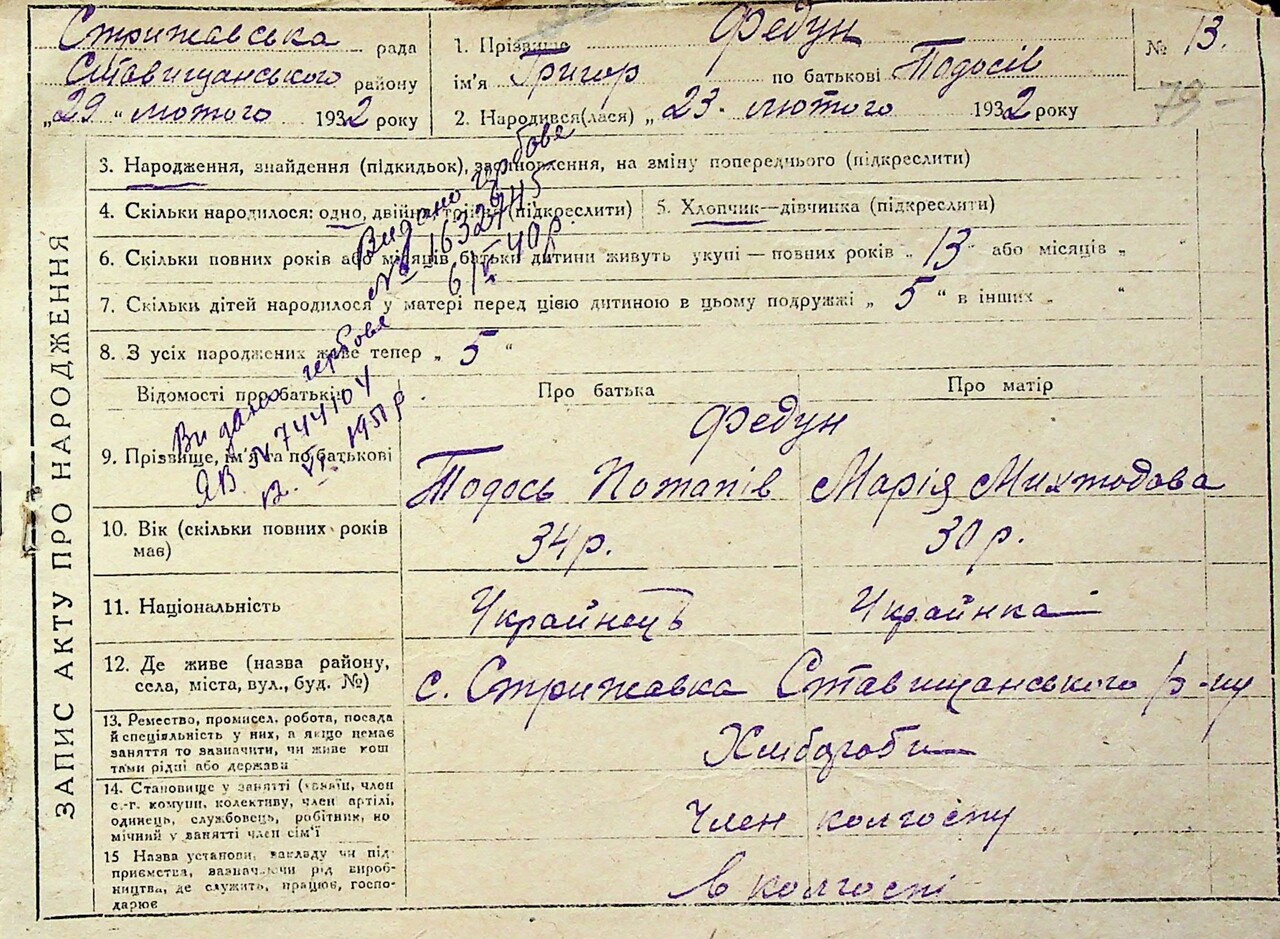 Стрижавська рада
Ставищанського району
„29 " лютого 1932 року
1. Прізвище Федун
ім'я Григор по батькові Тодосів
2. Народився(лася) „ 23. лютого 1932 року
№ 13.
79 –
ЗАПИС АКТУ ПРО НАРОДЖЕННЯ
3. Народження, знайдення (підкидьок), заповнення, на зміну попереднього (підкреслити)
4. Скільки народилося: одно, двійня, трійня (підкреслити)
5. Хлопчик—дівчинка (підкреслити)
6. Скільки повних років або місяців батьки дитини живуть укупі — повних років „ 13 " або місяців „ "
7. Скільки дітей народилося у матері перед цією дитиною в цьому подружжі „ 5 " в інших „ "
8. З усіх народжених живе тепер „ 5 "
Видано гербове
№ 1632745
6/ІV 40р.
Видано гербове
ЯВ. №744104
12. VI. 1951 р.
Відомості про батьків
Про батька
Про матір
Федун
9. Прізвище, ім'я та по батькові
Тодось Потапів
Марія Михтодова
10. Вік (скільки повних років
має)
34р.
30р.
11. Національність
Українець
Українка
12. Де живе (назва району,
села, міста, вул., буд. №)
с. Стрижавка Ставищанського р-ну
13. Ремество, промисел, робота, посада
й спеціяльність у них, а якщо немає
заняття то зазначити, чи живе кош
тами рідні або держави
Хлібороби
14. Становище у занятті (хазяїн, член
с.-г. комуни, колективу, член артілі,
одинець, службовець, робітник, по
мічний у занятті член сім'ї
Член колгоспу
15 Назва установи, закладу чи під-
приємства, зазначаючи рід вироб-
ництва, де служить, працює, госпо-
дарює
в колгоспі